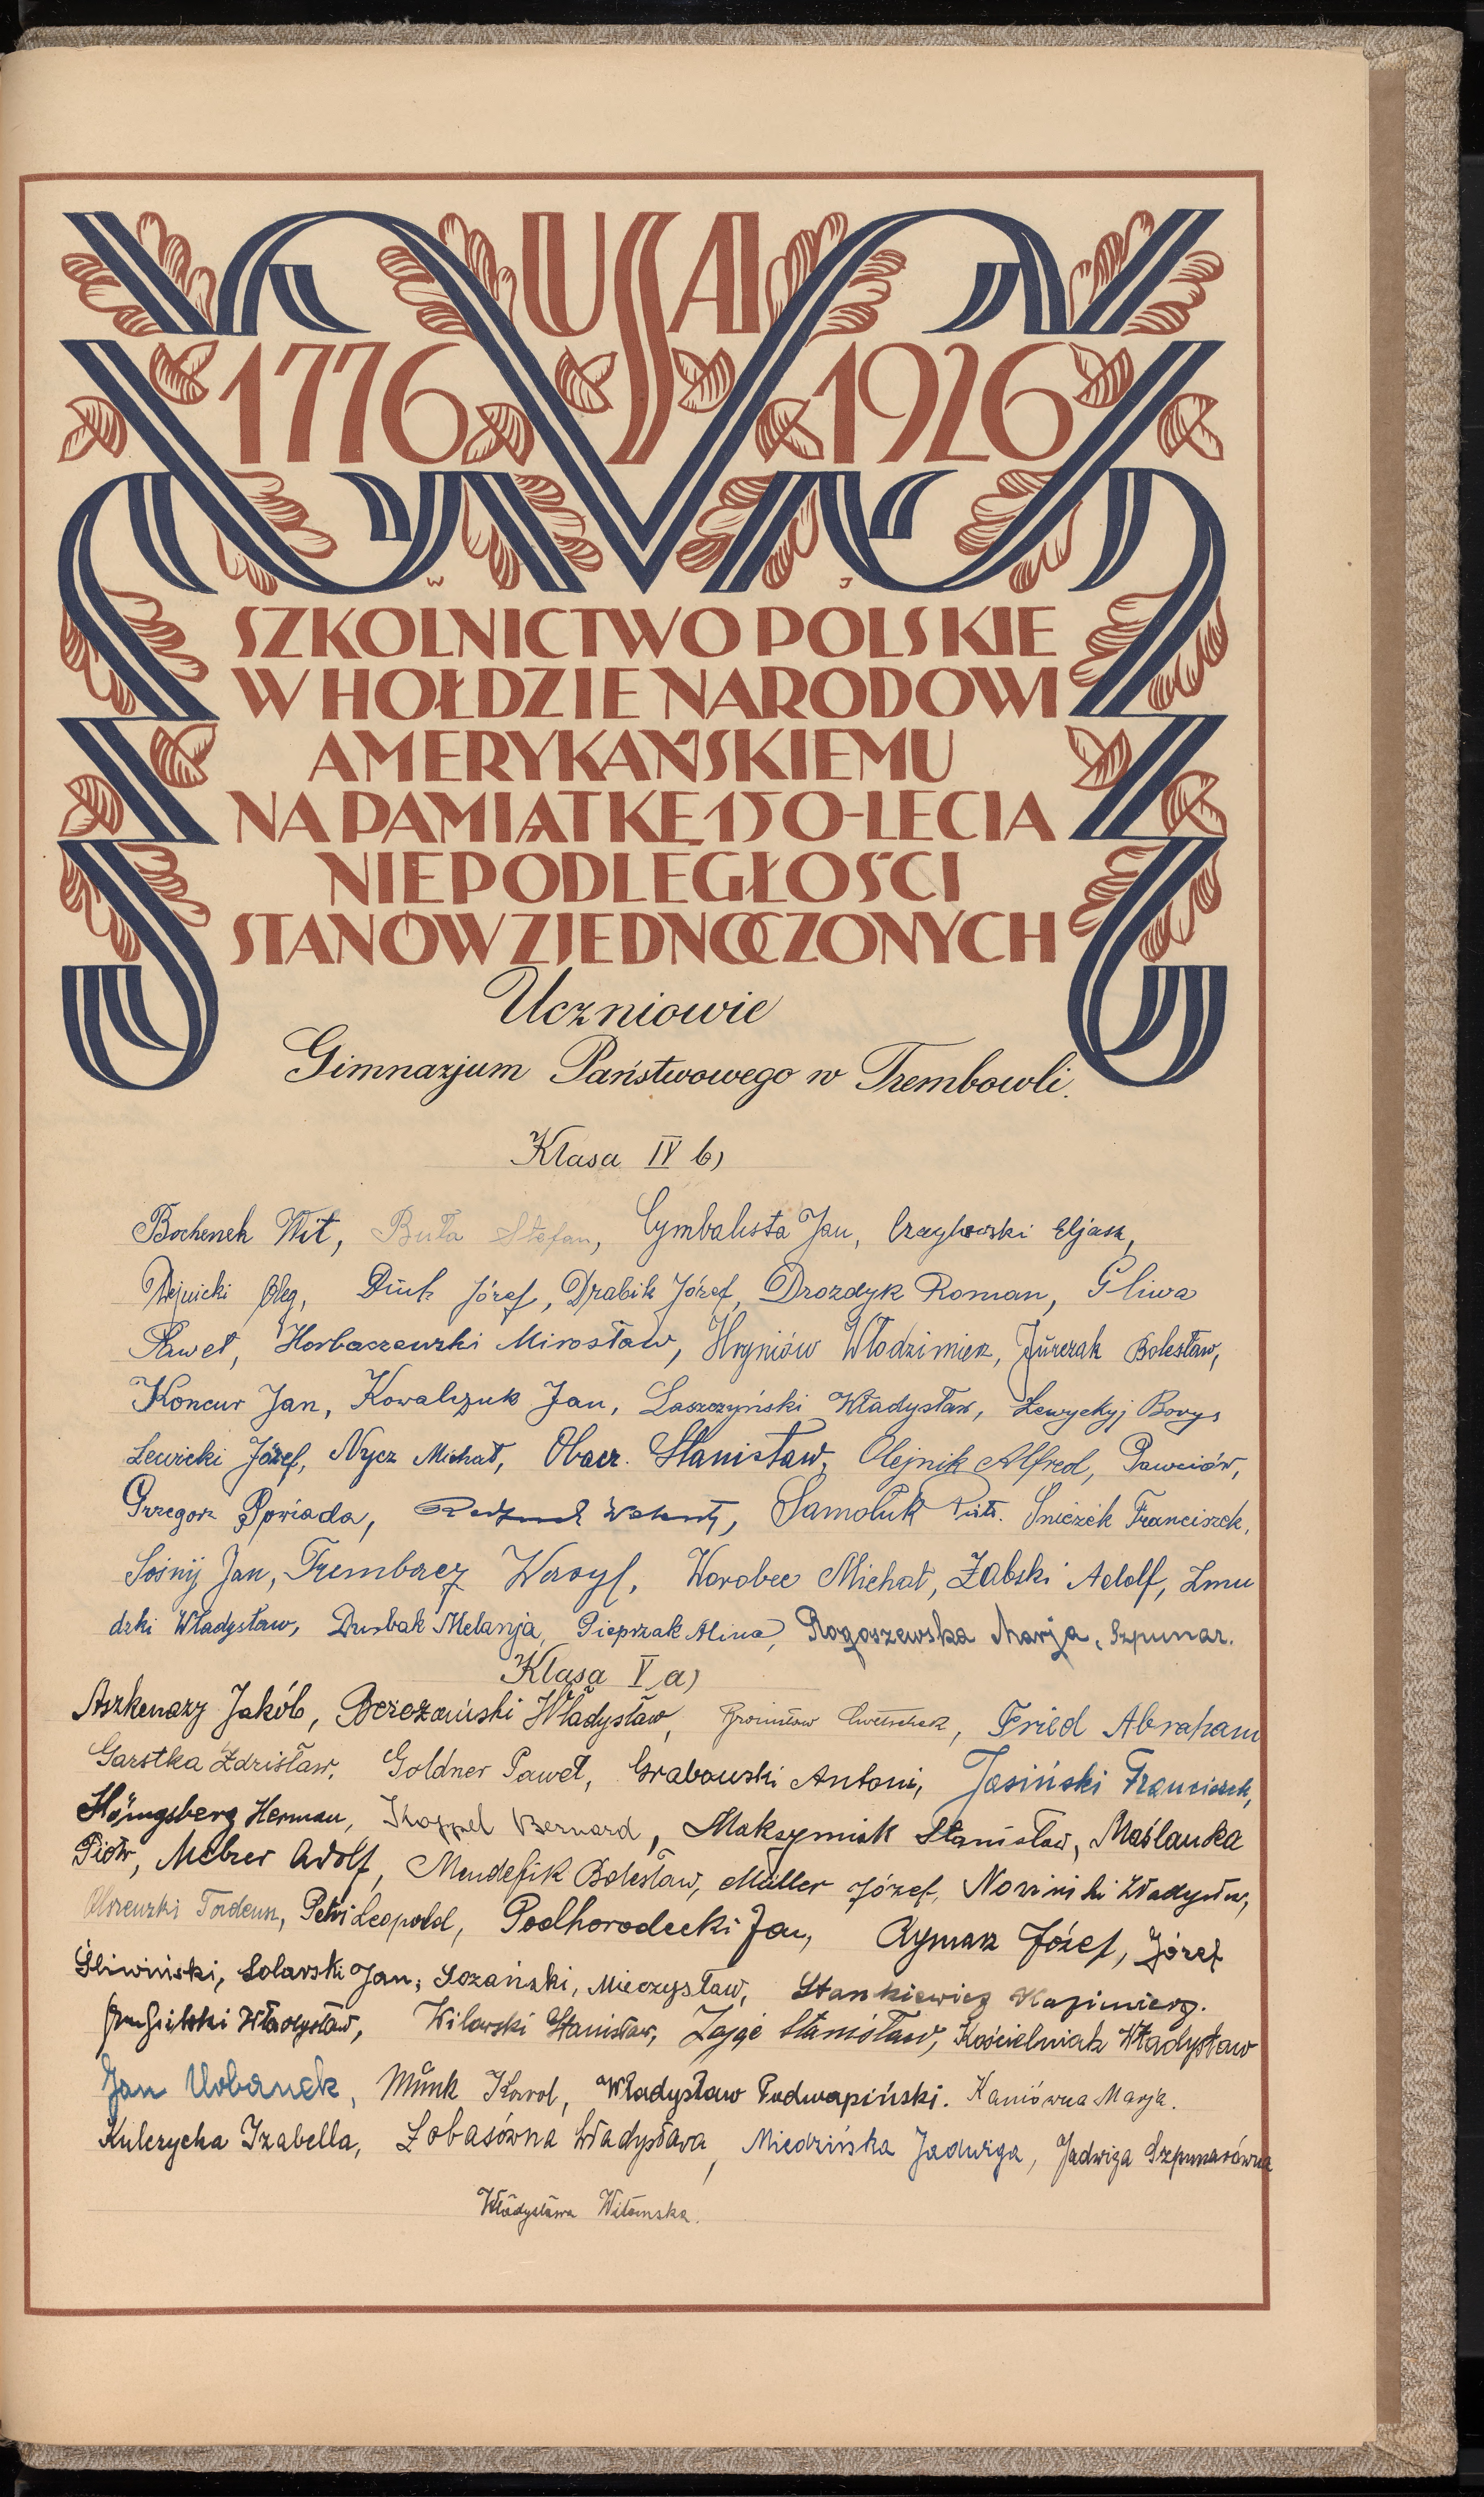 USA
1776 1926
W J
SZKOLNICTWO POLSKIE
W HOŁDZIE NARODOWI
AMERYKAŃSKIEMU
NA PAMIĄTKĘ 150-LECIA
NIEPODLEGŁOŚCI
STANÓW ZJEDNOCZONYCH
Uczniowie
Gimnazjum Państwowego w Trembowli.
Klasa IV b)
Bochenek Wit, Buła Stefan, Cymbalista Jan, Eljasz,
Oleg, Józef, Drabik Józef, Drozdyk Roman, Gliwa
Paweł, Horbaczewski Mirosław, Hryniów Włodzimierz, Jurczak Bolesław,
Koncur Jan, Kowalczuk Jan, Laszczyński Władysław, Lewyckyj Borys
Lewicki Józef, Nycz Michał, Obacz. Stanisław, Olejnik Alfred, Pawciów,
Grzegorz Spoviada, Samoluk Piotr. Śnieżek Franciszek,
Sośnij Jan, Trembacz Wasyl, Worobec Michał, Żabski Adolf, Żmu
dzki Władysław, Melanja, Pieprzak Alina, Rogoszewska Marja, Szpunar.
Klasa V a)
Aszkenazy Jakób, Bereżański Władysław, Bronisław, Fried Abraham
Garstka Zdzisław, Goldner Paweł, Grabowski Antoni, Jasiński Franciszek,
Hönigsberg Herman, Koppel Bernard, Maksymiak Stanisław, Maślanka
Piotr, Melzer Adolf, Mendefik Bolesław, Müller Józef, Władysław,
Olszewski Tadeusz, Petri Leopold, Podhorodecki Jan, Rymarz Józef, Józef
Śliwiński, Solarski Jan, Sozański, Mieczysław, Stankiewicz Kazimierz.
Władysław, Wilowski Stanisław, Zając Stanisław, Kościelniak Władysław
Jan Urbanek, Münk Karol, Władysław Podwapiński. Kaniówna Marja.
Kulczycka Izabella, Łobasówna Władysława, Miedzińska Jadwiga, Jadwiga Szpunarówna
Władysława Witomska.